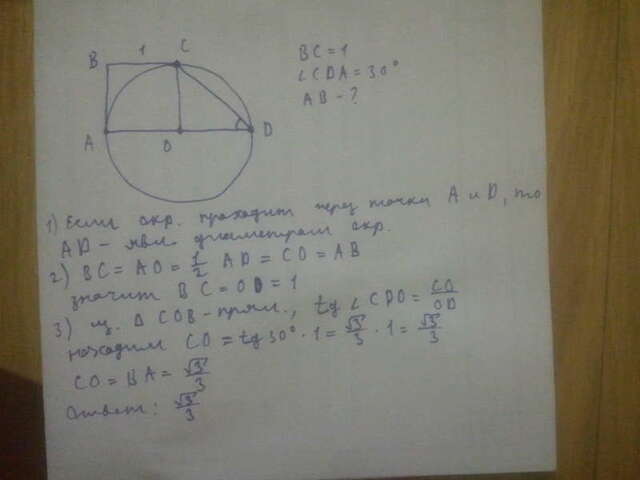 B 1 C
A O D
BC=1
∠CDA=30°
AB-?
1) Если окр. проходит через точки A и D, то
AD - явл. диаметром окр.
2) BC = AO = 1/2 AD = CO = AB
значит BC = OD = 1
3) из. △ COB - прям., tg ∠ CDO = CO/OD
находим CO = tg 30° · 1 = √3/3 · 1 = √3/3
CO = BA = √3/3
Ответ: √3/3